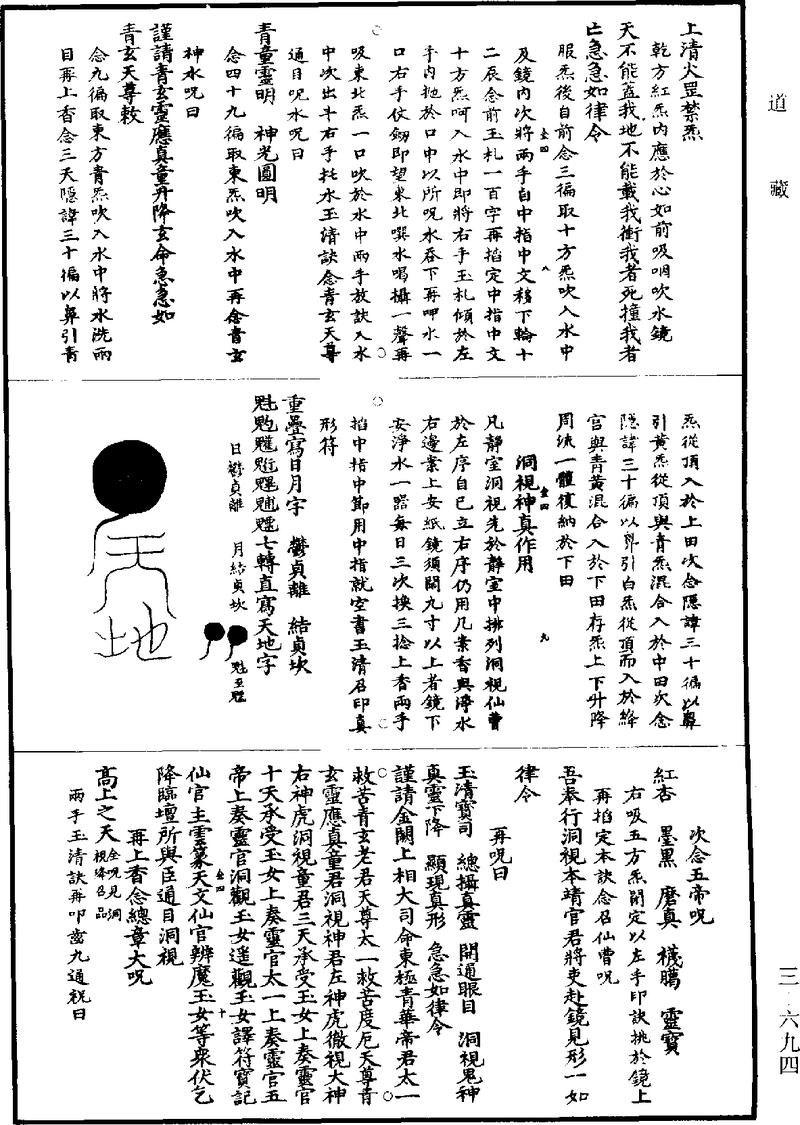 道藏
上清火罡禁炁
乾方紅炁內應於心如前吸咽吹水鏡
天不能蓋我地不能載我衝我者死撞我者
亡急急如律令
服炁後自前念三徧取十方炁吹入水中
及鏡內次將兩手自中指中文移下輪十
二辰念前玉札一百字再掐定中指中文
十方炁呵入水中即將右手玉札傾於左
手內拋於口中以所呪水吞下再呷水一
口右手仗劒即望東北噀水喝攝一聲再
吸東北炁一口吹於水中兩手放訣入水
中次出斗右手托水玉清訣念青玄天尊
通目呪水呪曰
青童靈明　神光圓明
念四十九徧取東炁吹入水中再念青玄
神水呪曰
謹請青玄靈應真童丹降玄命急急如
青玄天尊敕
念九徧取東方青炁吹入水中將水洗兩
目再上香念三天隱諱三十徧以鼻引青
炁從頂入於上田次念隱諱三十徧以鼻
引黃炁從頂與青炁混合入於中田次念
隱諱三十徧以鼻引白炁從頂而入於絳
宮與青黃混合入於下田存炁上下升降
周流一體復納於下田
洞視神真作用
凡靜室洞視先於靜室中排列洞視仙曹
於左序自己立右序仍用几案香與淨水
右邊案上安紙鏡須闊九寸以上者鏡下
安淨水一器每日三次換三捻上香兩手
掐中指中節用中指就空書玉清召印真
形符
重疊寫日月字　鬱貞離　結貞坎
七轉直寫天地字
日鬱貞離　月結貞坎
次念五帝呪
紅杏　墨黑　麿真　襪䑃　靈寶
右吸五方炁閉定以左手印訣挑於鏡上
再掐定本訣念召仙曹呪
吾奉行洞視本靖官君將吏赴鏡見形一如
律令
再呪曰
玉清寶司　總攝真靈　開通眼目　洞視鬼神
真靈下降　顯現真形　急急如律令
謹請金闕上相大司命東極青華帝君太一
救苦青玄老君天尊太一救苦度厄天尊青
玄靈應真童君洞視神君左神虎徹視大神
右神虎洞視童君三天承受玉女上奏靈官
十天承受玉女上奏靈官太一上奏靈官五
帝上奏靈官洞觀玉女遥觀玉女譯符寶記
仙官主雲篆天文仙官辨魔玉女等衆伏乞
降臨壇所與臣通目洞視
再上香念總章大呪
高上之天全呪見洞視降召品
兩手玉清訣再叩齒九通祝曰
三·六九四